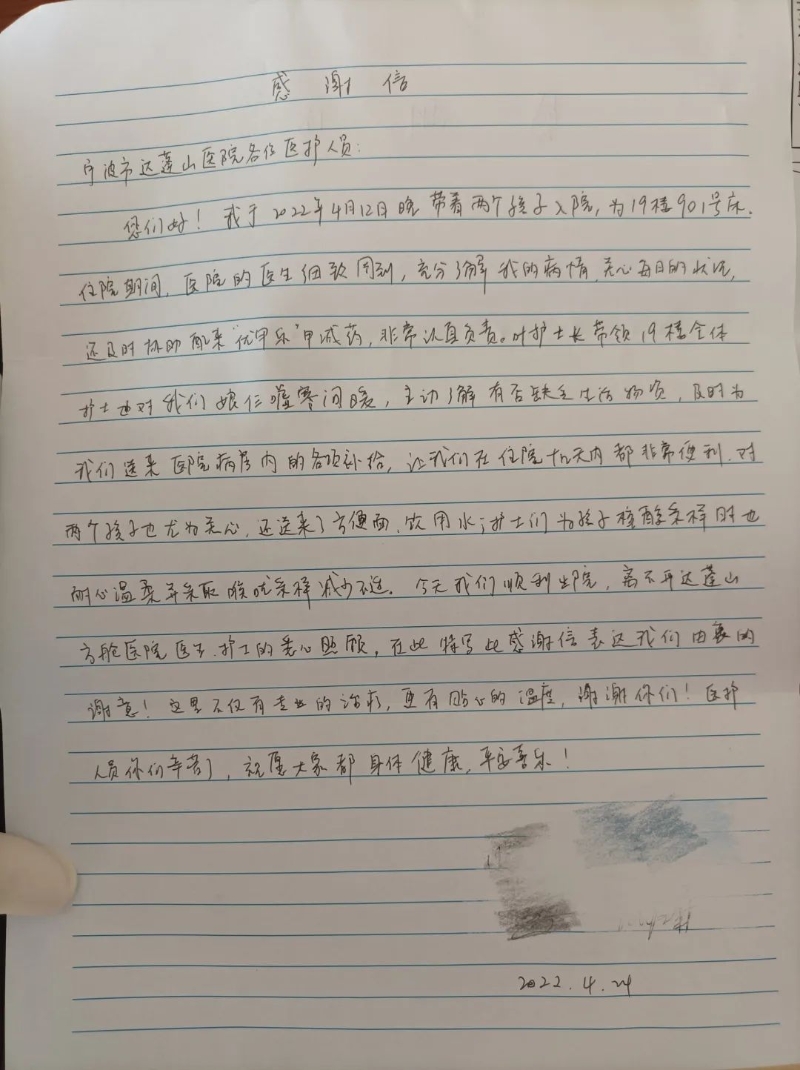 感谢信
宁波市达蓬山医院各位医护人员：
您们好！我于2022年4月12日晚带着两个孩子入院，为19楼901号床.
住院期间，医院的医生细致周到，充分了解我的病情、关心每日的状况，
还及时协助配来“优甲乐”甲减药，非常认真负责。叶护士长带领19楼全体
护士也对我们娘仨嘘寒问暖，主动了解有否缺乏生活物资，及时为
我们送来医院病房内的各项补给，让我们在住院十几天内都非常便利.对
两个孩子也尤为关心，还送来了方便面、饮用水；护士们为孩子核酸采样时也
耐心温柔并采取喉咙采样减少不适。今天我们顺利出院，离不开达蓬山
方舱医院医生、护士的悉心照顾，在此特写此感谢信表达我们由衷的
谢意！这里不仅有专业的治疗，更有贴心的温度，谢谢你们！医护
人员你们辛苦了，祝愿大家都身体健康，平安喜乐！
2022.4.24